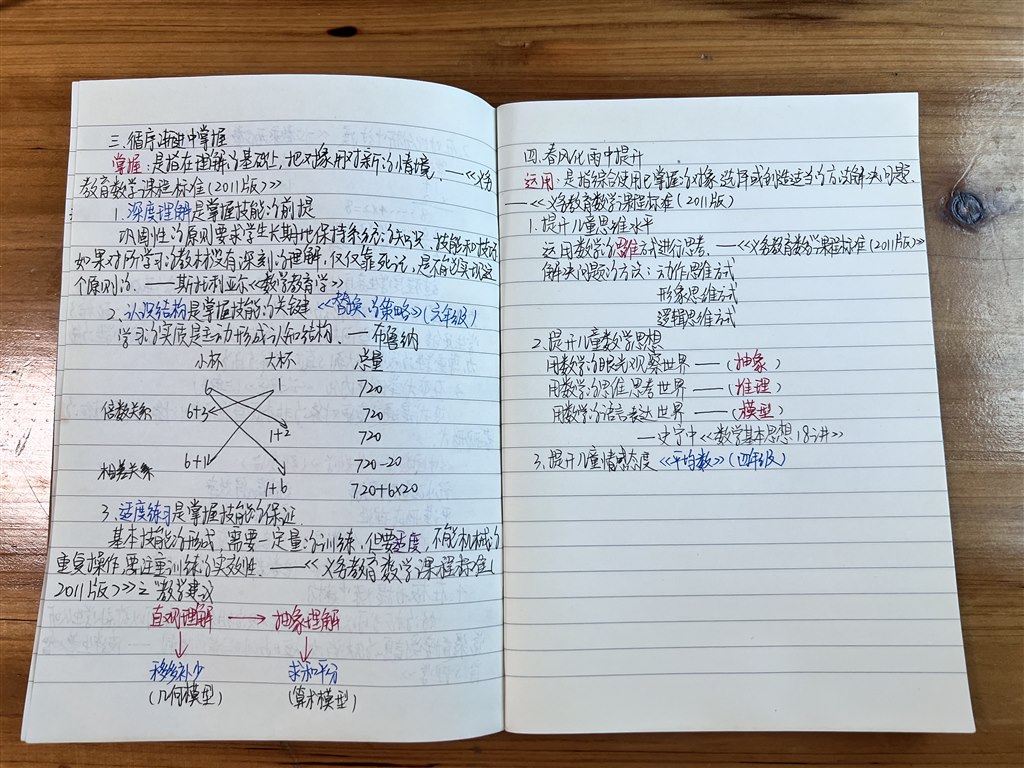 三.循序渐进中掌握
掌握:是指在理解的基础上,把对象用对新的情境.——《义务
教育数学课程标准(2011版)》
1.深度理解是掌握技能的前提
巩固性的原则要求学生长期地保持系统的知识、技能和技巧
如果对所学习的教材没有深刻的理解,仅仅靠死记,是不能实现这
个原则的.——斯托利亚尔《数学教育学》
2.认识结构是掌握技能的关键《替换的策略》(六年级)
学习的实质是主动形成认知结构.——布鲁纳
小杯 大杯 总量
6 1 720
倍数关系 6+3 720
1+2 720
相差关系 6+1 720-20
1+6 720+6×20
3.适度练习是掌握技能的保证.
基本技能的形成,需要一定量的训练,但要适度,不能机械的
重复操作,要注重训练的实效性.——《义务教育数学课程标准(
2011版)》之"教学建议
直观理解 → 抽象理解
移多补少 求和平分
(几何模型) (算术模型)
四.春风化雨中提升
运用:是指综合使用已掌握的对象,选择或创造适当的方法解决问题.
——《义务教育数学课程标准(2011版)
1.提升儿童思维水平
运用数学的思维方式进行思考.——《义务教育数学课程标准(2011版)》
解决问题的方法:动作思维方式
形象思维方式
逻辑思维方式
2.提升儿童数学思想
用数学的眼光观察世界——(抽象)
用数学的思维思考世界——(推理)
用数学的语言表达世界——(模型)
—史宁中《数学基本思想18讲》
3.提升儿童情感态度《平均数》(四年级)